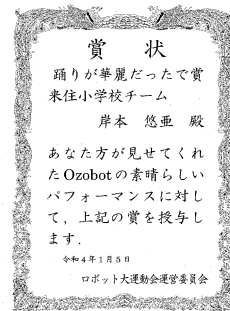 賞状
踊りが華麗だったで賞
来住小学校チーム
岸本 悠亜 殿
あなた方が見せてくれ
たOzobotの素晴らしい
パフォーマンスに対し
て，上記の賞を授与し
ます．
令和4年1月5日
ロボット大運動会運営委員会